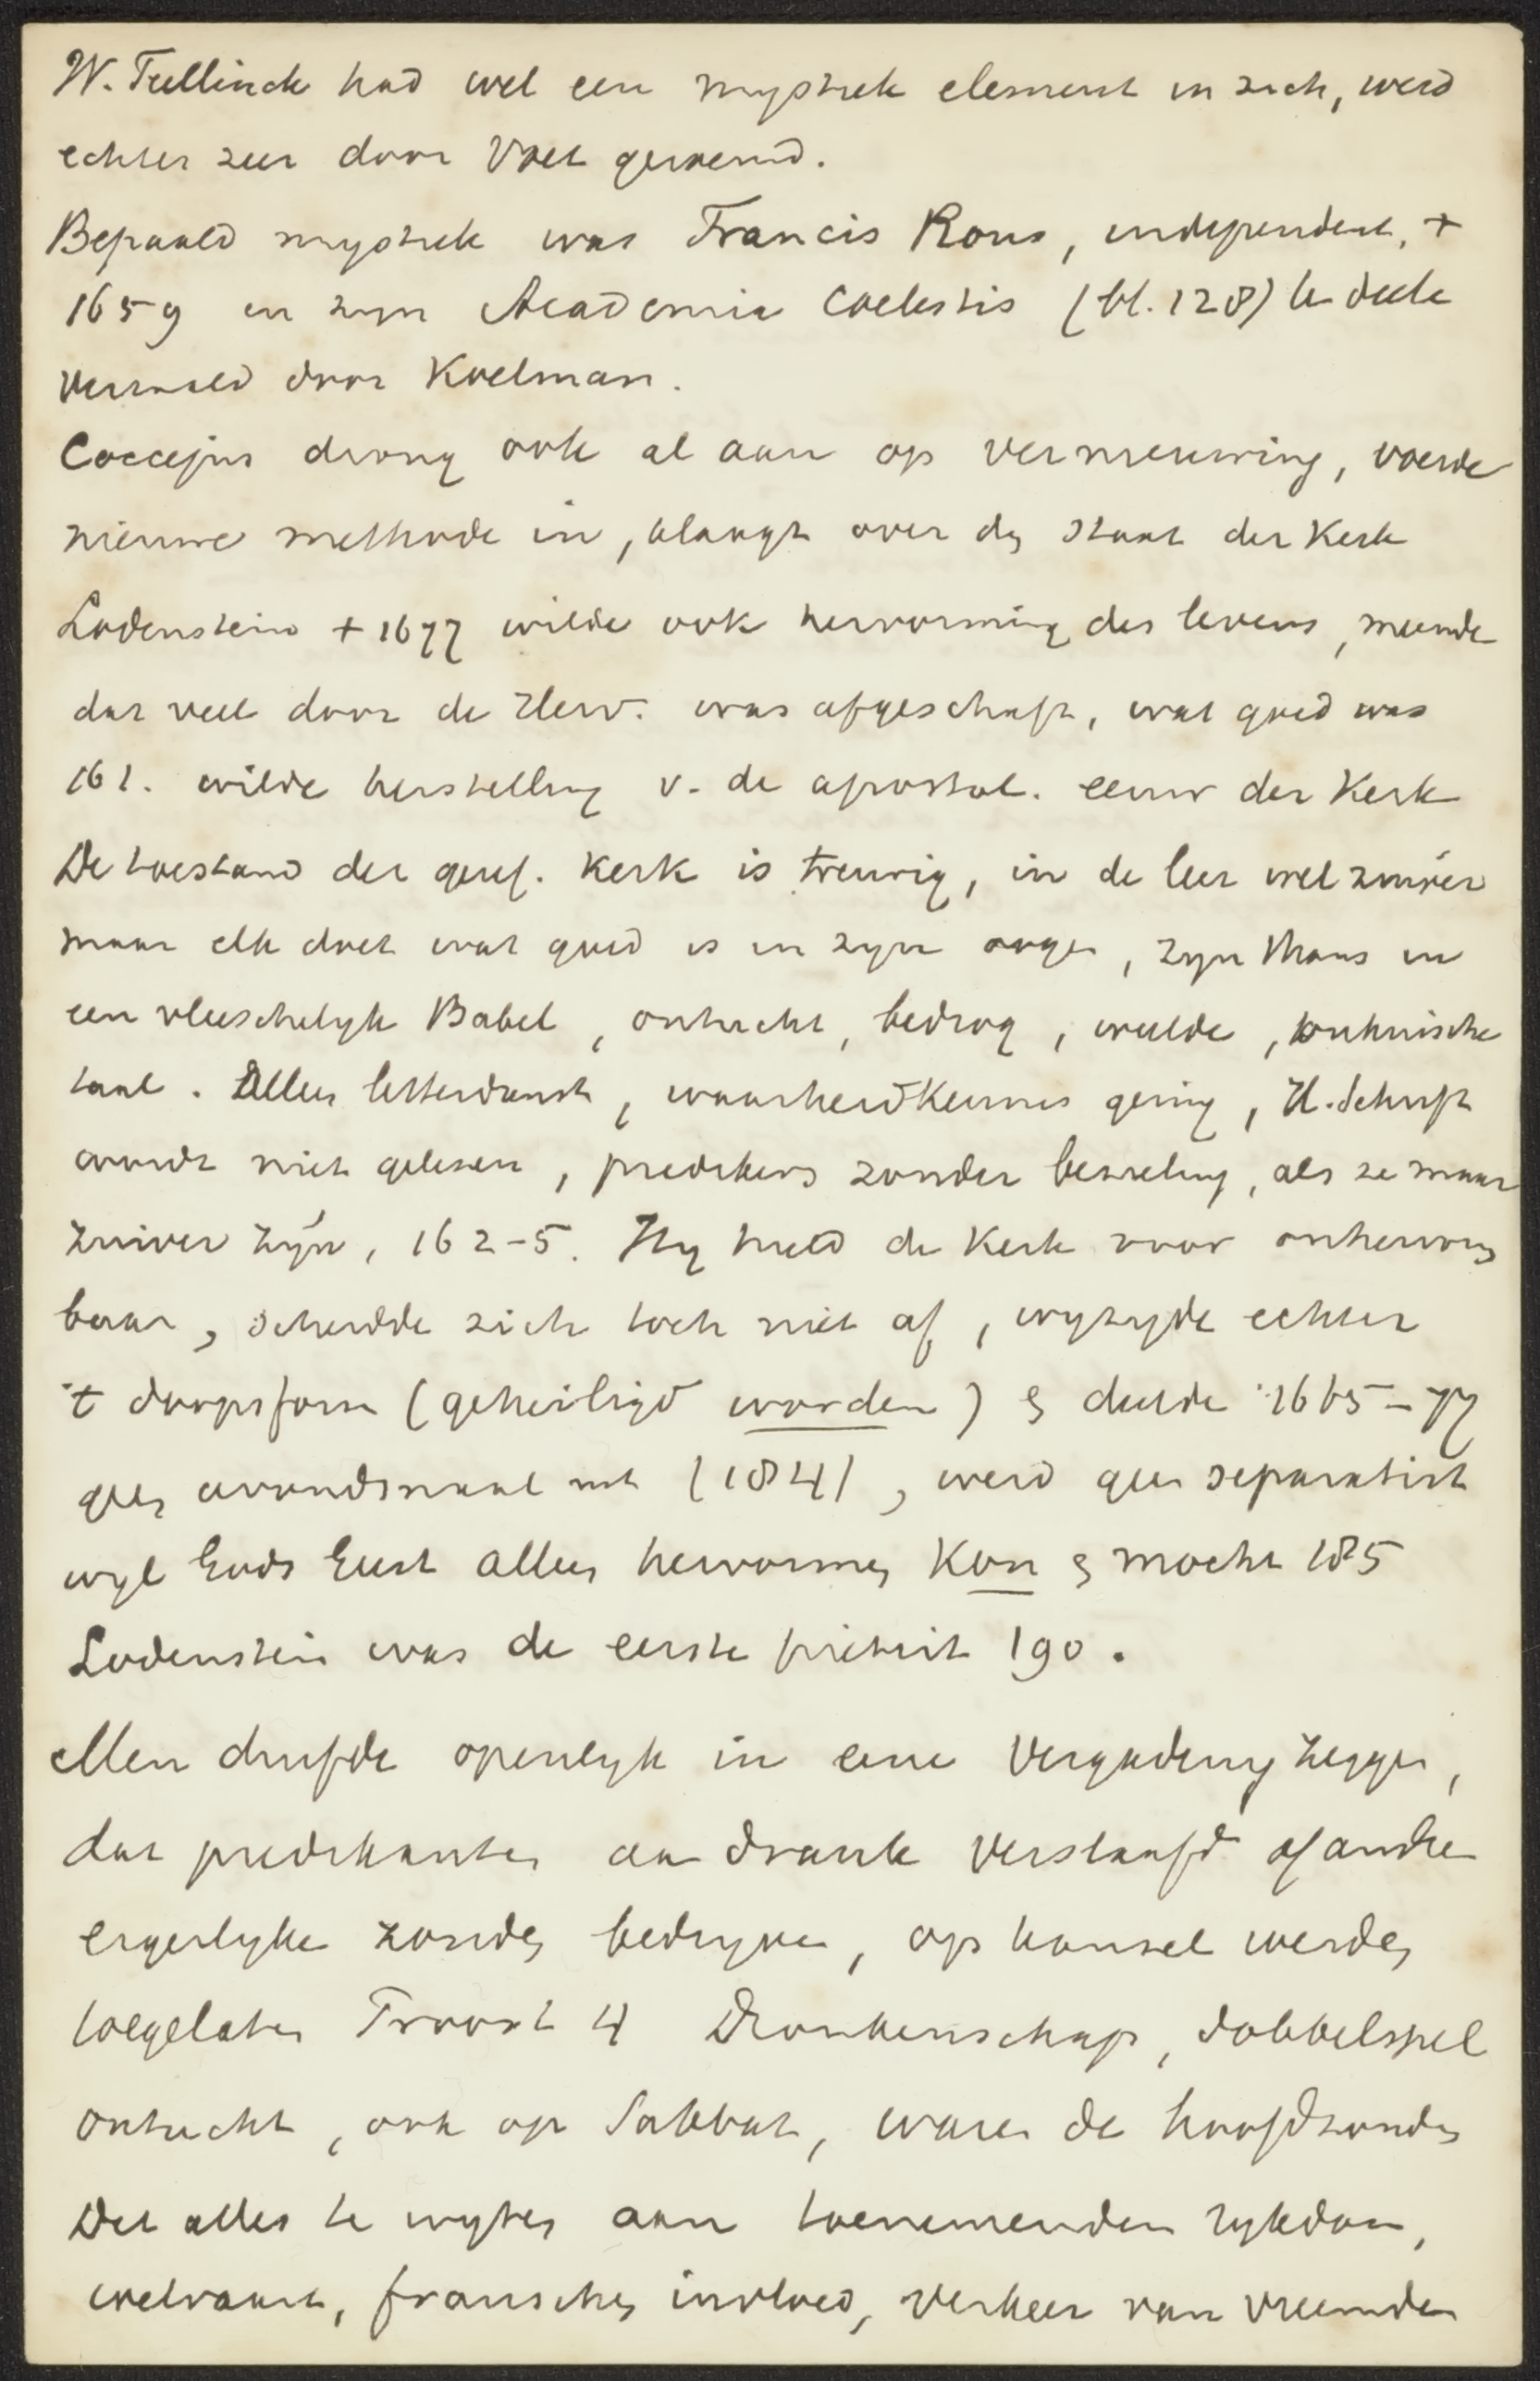 W. Teellinck had wel een mystiek element in zich, werd
echter zeer door Voet geroemd.
Bepaald mystiek was Francis Rous, independent, +
1659 in zyn Academia Coelestis (bl. 128) te deele
vertaald door Koelman.
Coccejus drong ook al aan op vernieuwing, voerde
nieuwe methode in, klaagt over den staat der Kerk
Lodenstein + 1677 wilde ook hervorming des levens, meende
dat veel door de Herv. was afgeschaft, wat goed was
161. wilde herstelling v. de apostol. eeuw der Kerk
De toestand der geref. Kerk is treurig, in de leer wel zuiver
maar elk doet wat goed is in zyn oogen, zyn thans in
een vleeschelyk Babel, ontucht, bedrog, weelde,
taal. Alleen letterdienst, waarheidkennis gering, H. Schrift
wordt niet gelezen, predikers zonder bezieling, als ze maar
zuiver zyn, 162-5. Hy hield de Kerk voor onhervorm
baar, scheidde zich toch niet af, wyzigde echter
't doopsform (geheiligd worden) & deelde 1665-77
geen avondmaal uit (184), werd geen separatist
wyl Gods Geest alleen hervormen kon & mocht 185
Lodenstein was de eerste piëtist 190.
Men durfde openlyk in eene vergadering zeggen,
dat predikanten aan drank verslaafd of andre
ergerlyke zonden bedryven, op kansel werden
toegelaten Troost 4 Dronkenschap, dobbelspel
ontucht, ook op Sabbat, waren de hoofdzonden
Dit alles te wyten aan toenemenden rykdom,
welvaart, franschen invloed, verkeer van vreemden